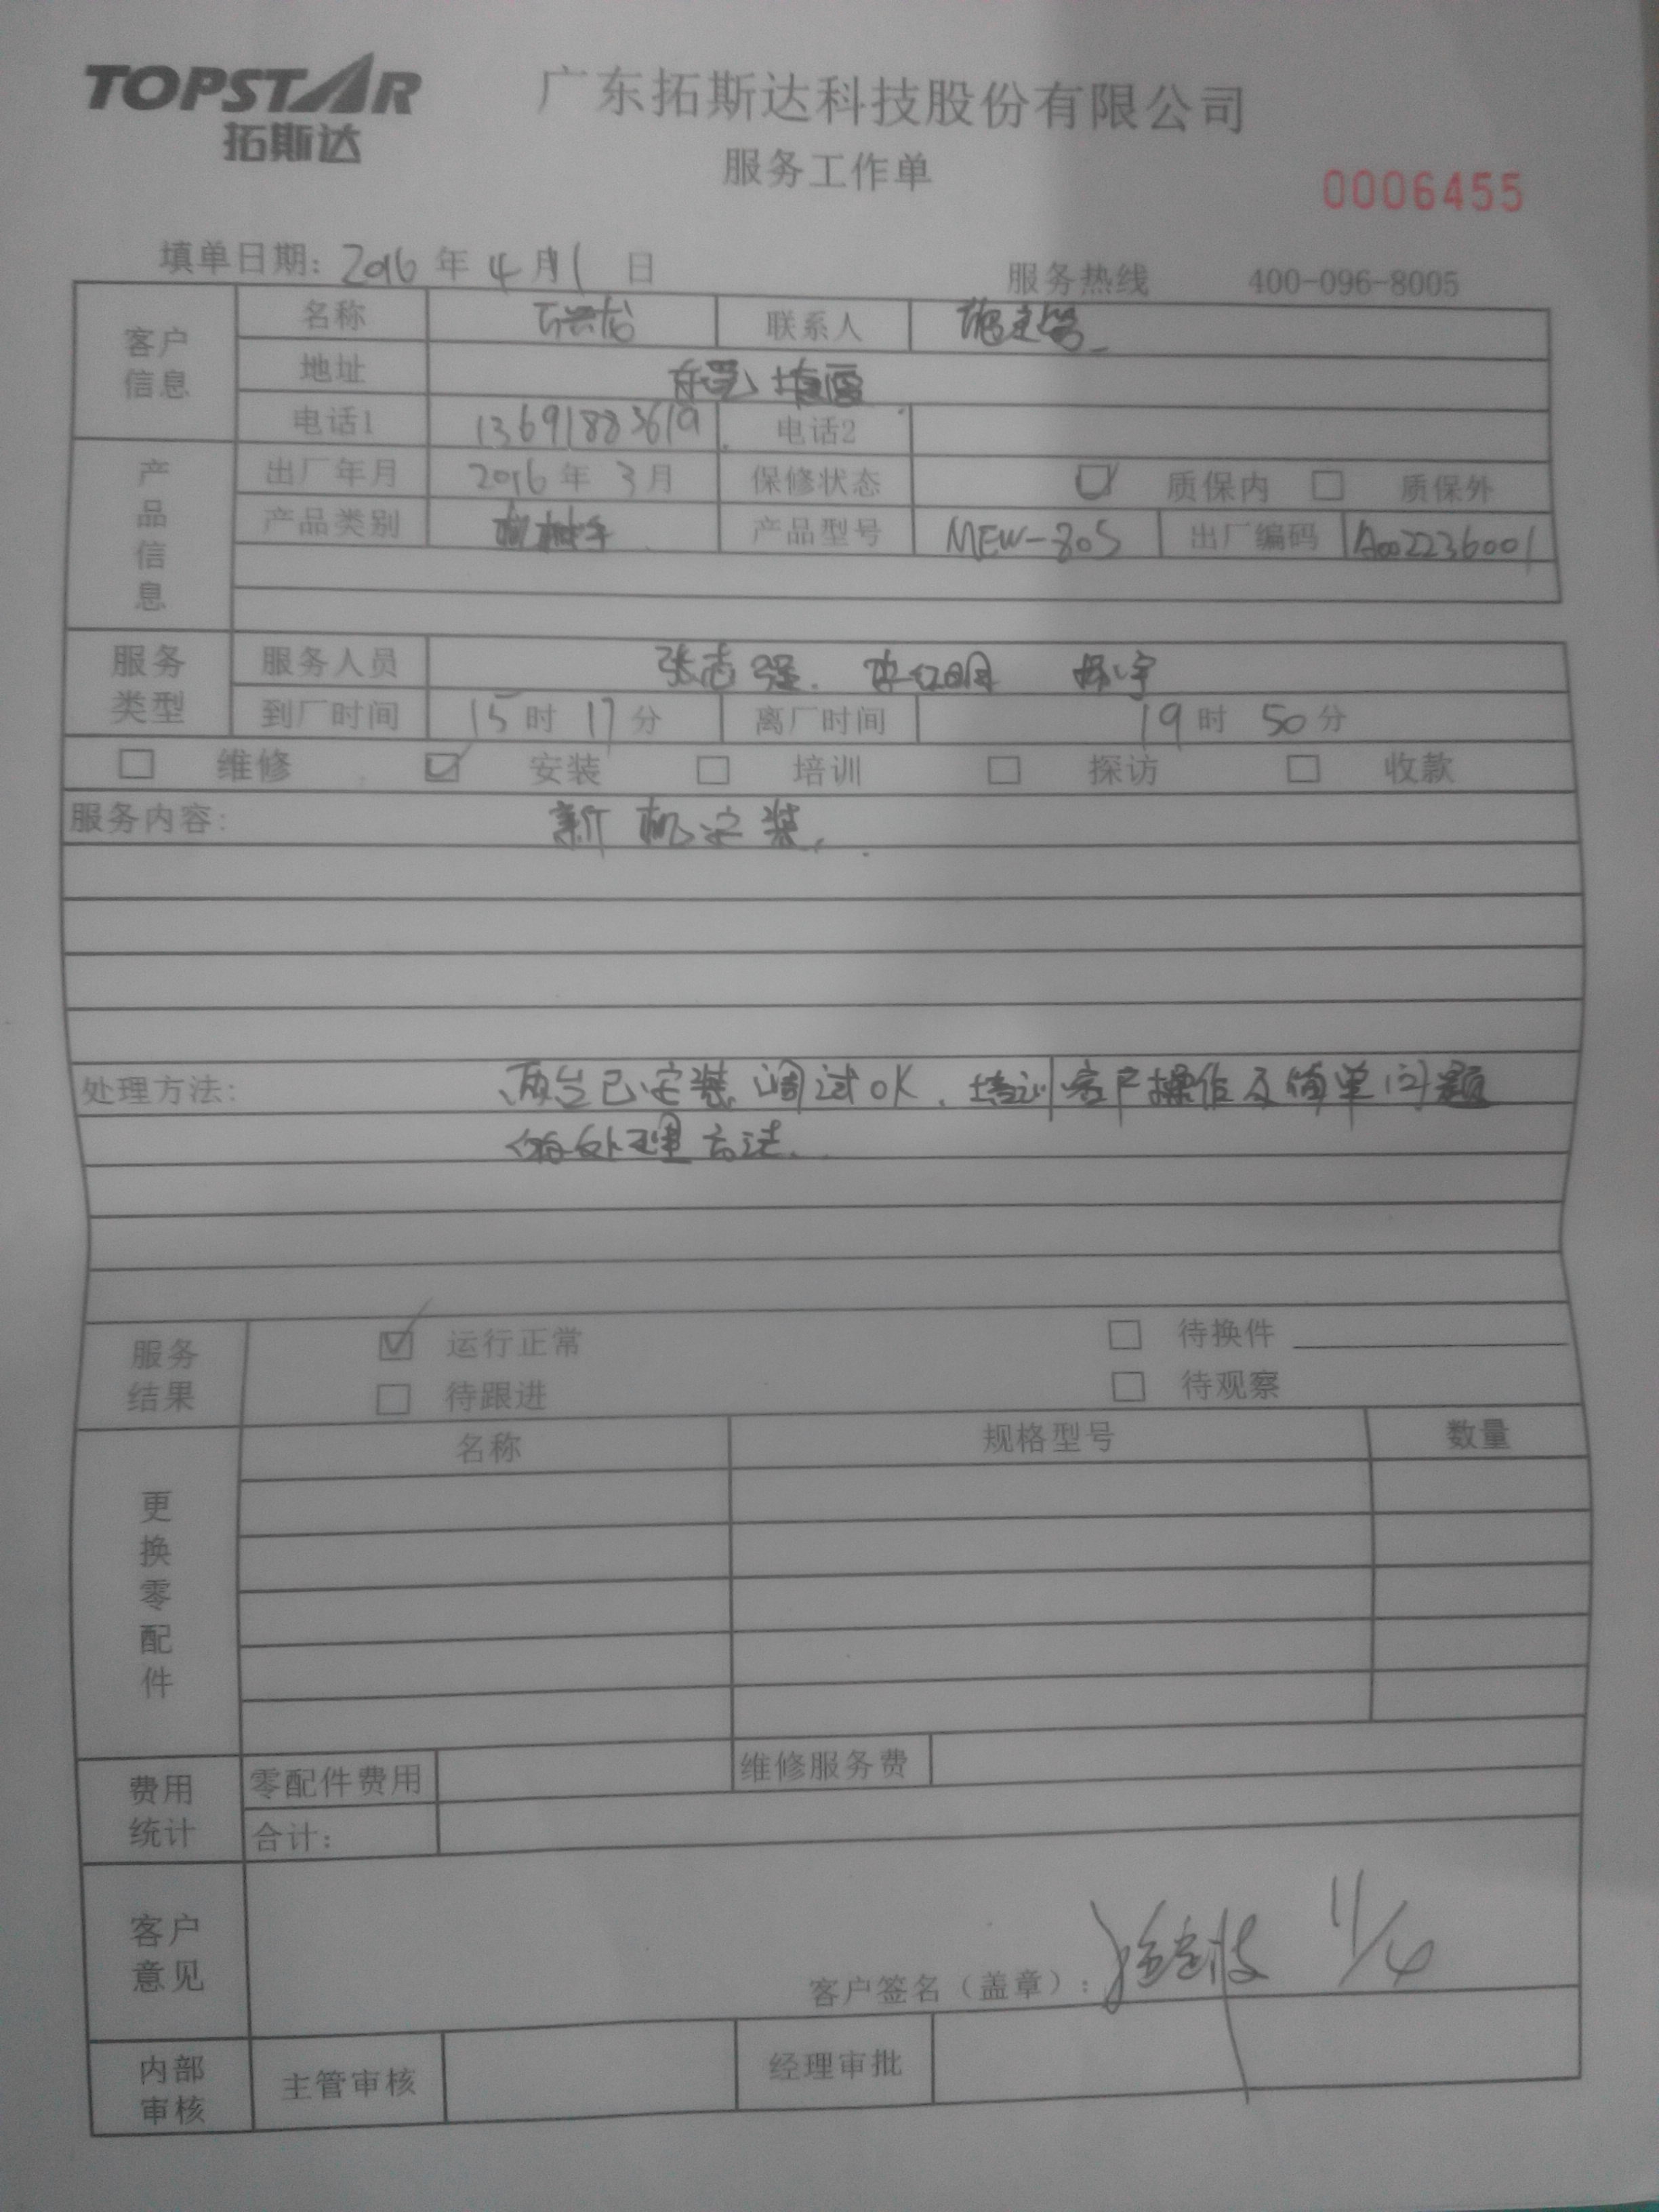 TOPSTAR
拓斯达
广东拓斯达科技股份有限公司
服务工作单
0006455
填单日期: 2016 年 4 月 1 日
服务热线 400-096-8005
客户信息
名称 联系人
地址 东莞
电话1 13691883619 电话2
产品信息
出厂年月 2016 年 3 月 保修状态 质保内 质保外
产品类别 机械手 产品型号 MEW-80S 出厂编码 A002236001
服务类型
服务人员 张志强.
到厂时间 15 时 17 分 离厂时间 19 时 50 分
维修 安装 培训 探访 收款
服务内容: 新机安装.
处理方法: 两台已安装调试OK. 培训客户操作及简单问题
处理方法.
服务结果
运行正常 待换件
待跟进 待观察
更换零配件
名称 规格型号 数量
费用统计
零配件费用 维修服务费
合计:
客户意见
客户签名(盖章): 1/4
内部审核
主管审核 经理审批